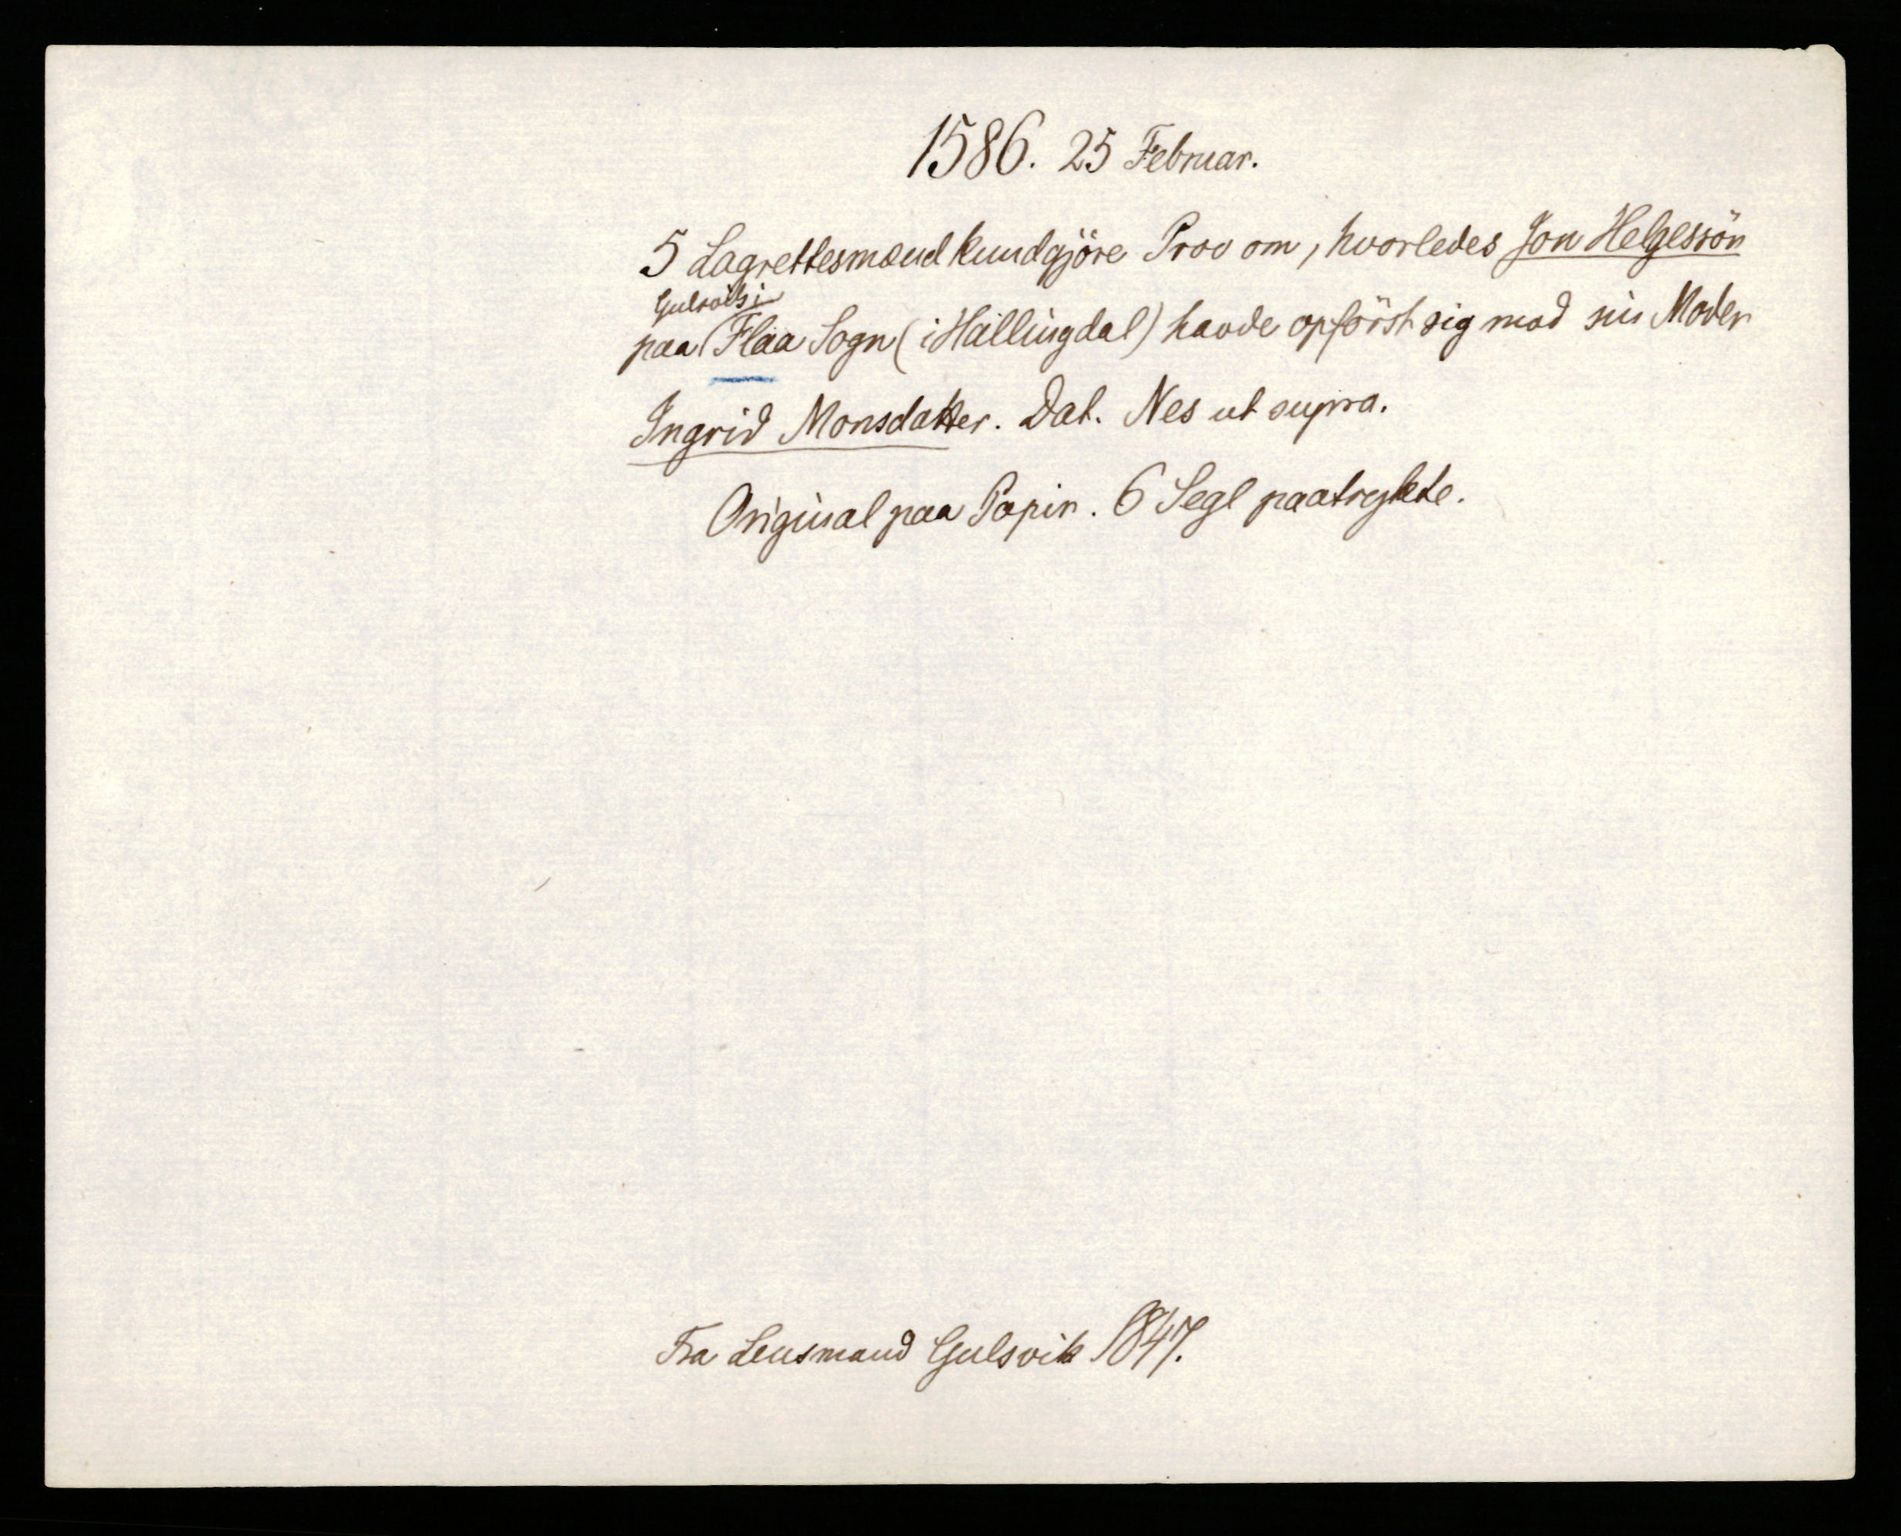 1586. 25 Februar.
5 Lagrettesmænd kundgjöre Prov om, hvorledes Jon Helgessön
Gulsvik i
paa Flaa Sogn (i Hallingdal) havde opförst sig mod sin Moder
Ingrid Monsdatter. Dat. Nes ut supra.
Original paa Papir. 6 Segl paatrykte.
Fra Lensmand Gulsvik 1847.